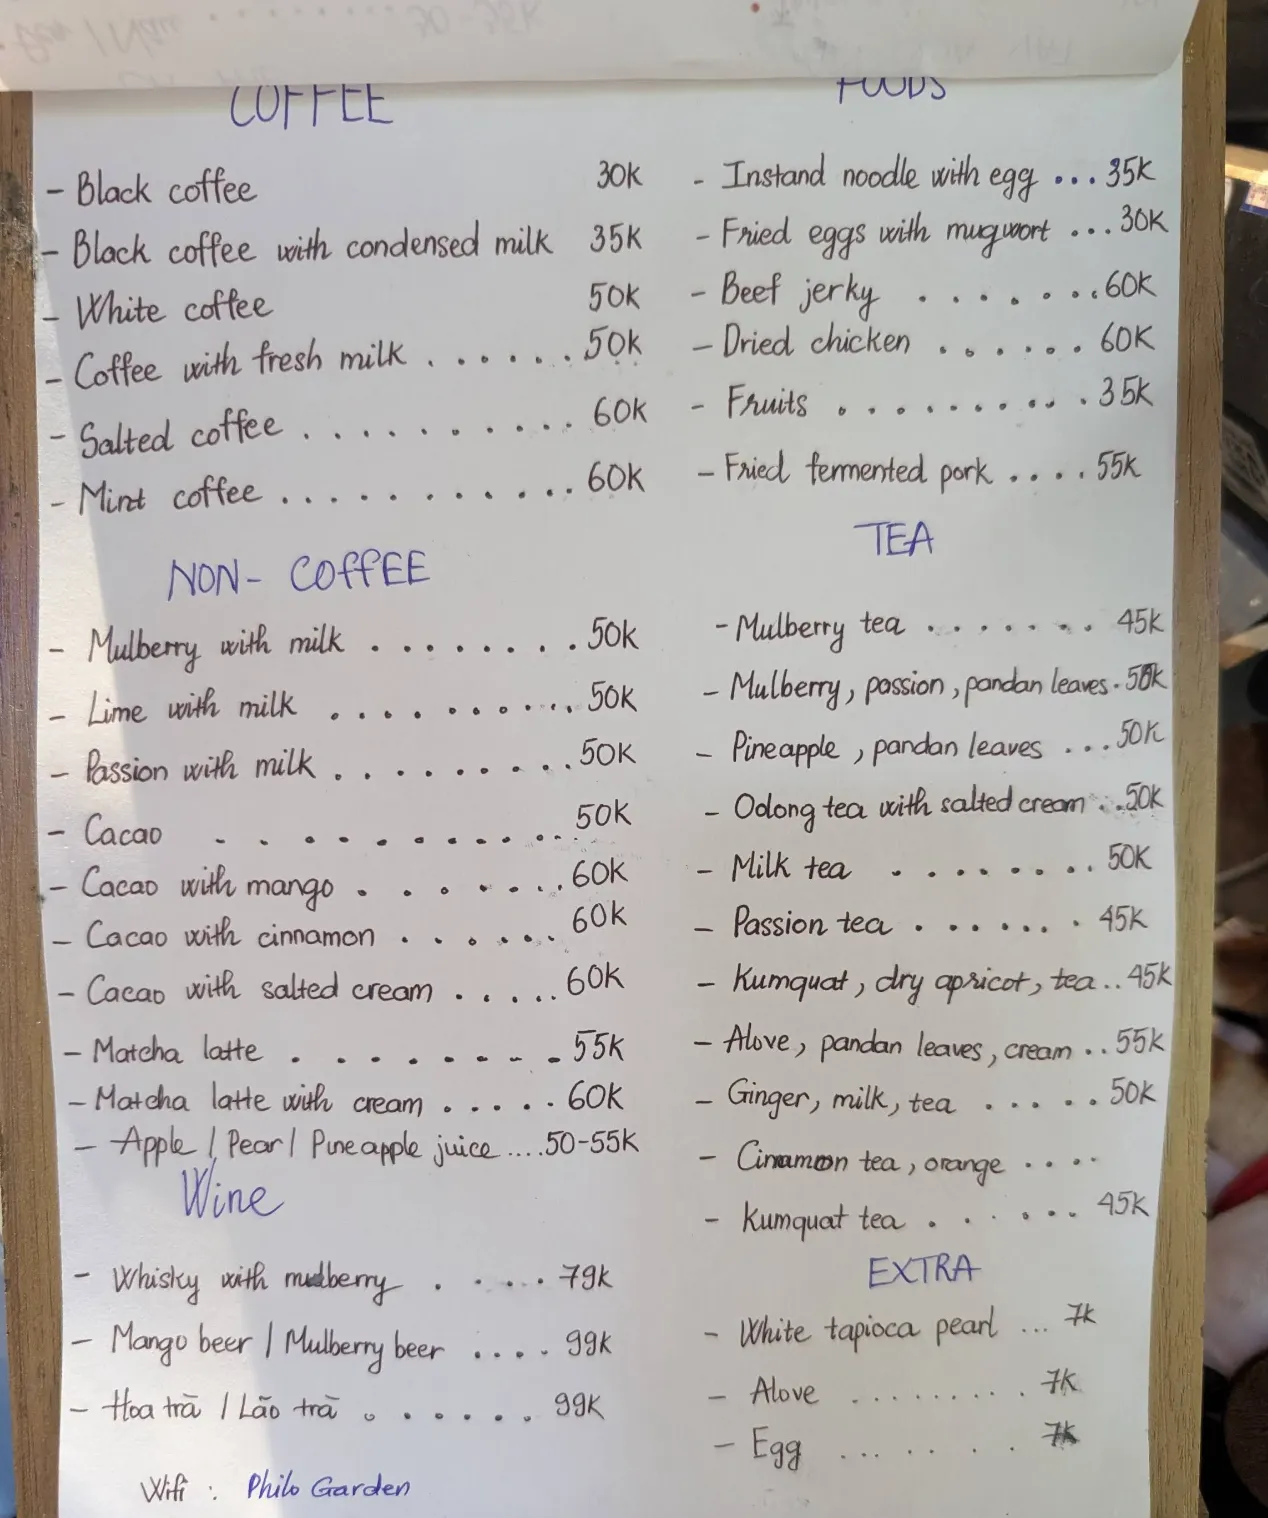 COFFEE
- Black coffee 30K
- Black coffee with condensed milk 35K
- White coffee 50K
- Coffee with fresh milk . . . . . . 50K
- Salted coffee . . . . . . . . . . 60K
- Mint coffee . . . . . . . . . . . . 60K
NON- COFFEE
- Mulberry with milk . . . . . . . . 50K
- Lime with milk . . . . . . . . . . 50K
- Passion with milk . . . . . . . . . 50K
- Cacao . . . . . . . . . . 50K
- Cacao with mango . . . . . . . . 60K
- Cacao with cinnamon . . . . . . 60K
- Cacao with salted cream . . . . . 60K
- Matcha latte . . . . . - - - 55K
- Matcha latte with cream . . . . . 60K
- Apple / Pear / Pineapple juice ....50-55K
Wine
- Whisky with mulberry . . . . . 79K
- Mango beer / Mulberry beer . . . . 99K
- Hoa trà / Lão trà . . . . . . 99K
Wifi : Philo Garden
FOODS
- Instand noodle with egg ... 35K
- Fried eggs with mugwort ... 30K
- Beef jerky . . . . . . . . 60K
- Dried chicken . . . . . . 60K
- Fruits . . . . . . . . . . . 35K
- Fried fermented pork . . . . 55K
TEA
- Mulberry tea . . . . . . . 45K
- Mulberry, passion, pandan leaves . 50K
- Pineapple, pandan leaves ... 50K
- Oolong tea with salted cream ... 50K
- Milk tea . . . . . . . . 50K
- Passion tea . . . . . . . 45K
- Kumquat, dry apricot, tea .. 45K
- Alove, pandan leaves, cream .. 55K
- Ginger, milk, tea . . . . . 50K
- Cinnamon tea, orange . . . .
- Kumquat tea . . . . . . 45K
EXTRA
- White tapioca pearl ... 7K
- Alove . . . . . . . . . 7K
- Egg . . . . . . . 7K